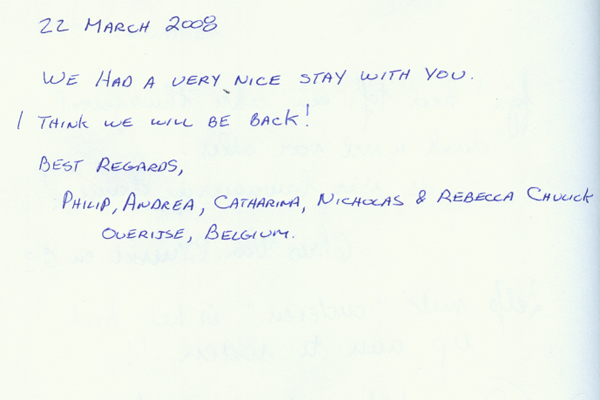 22 MARCH 2008
WE HAD A VERY NICE STAY WITH YOU.
I THINK WE WILL BE BACK!
BEST REGARDS,
PHILIP, ANDREA, CATHARINA, NICHOLAS & REBECCA CHULICK
OVERIJSE, BELGIUM.